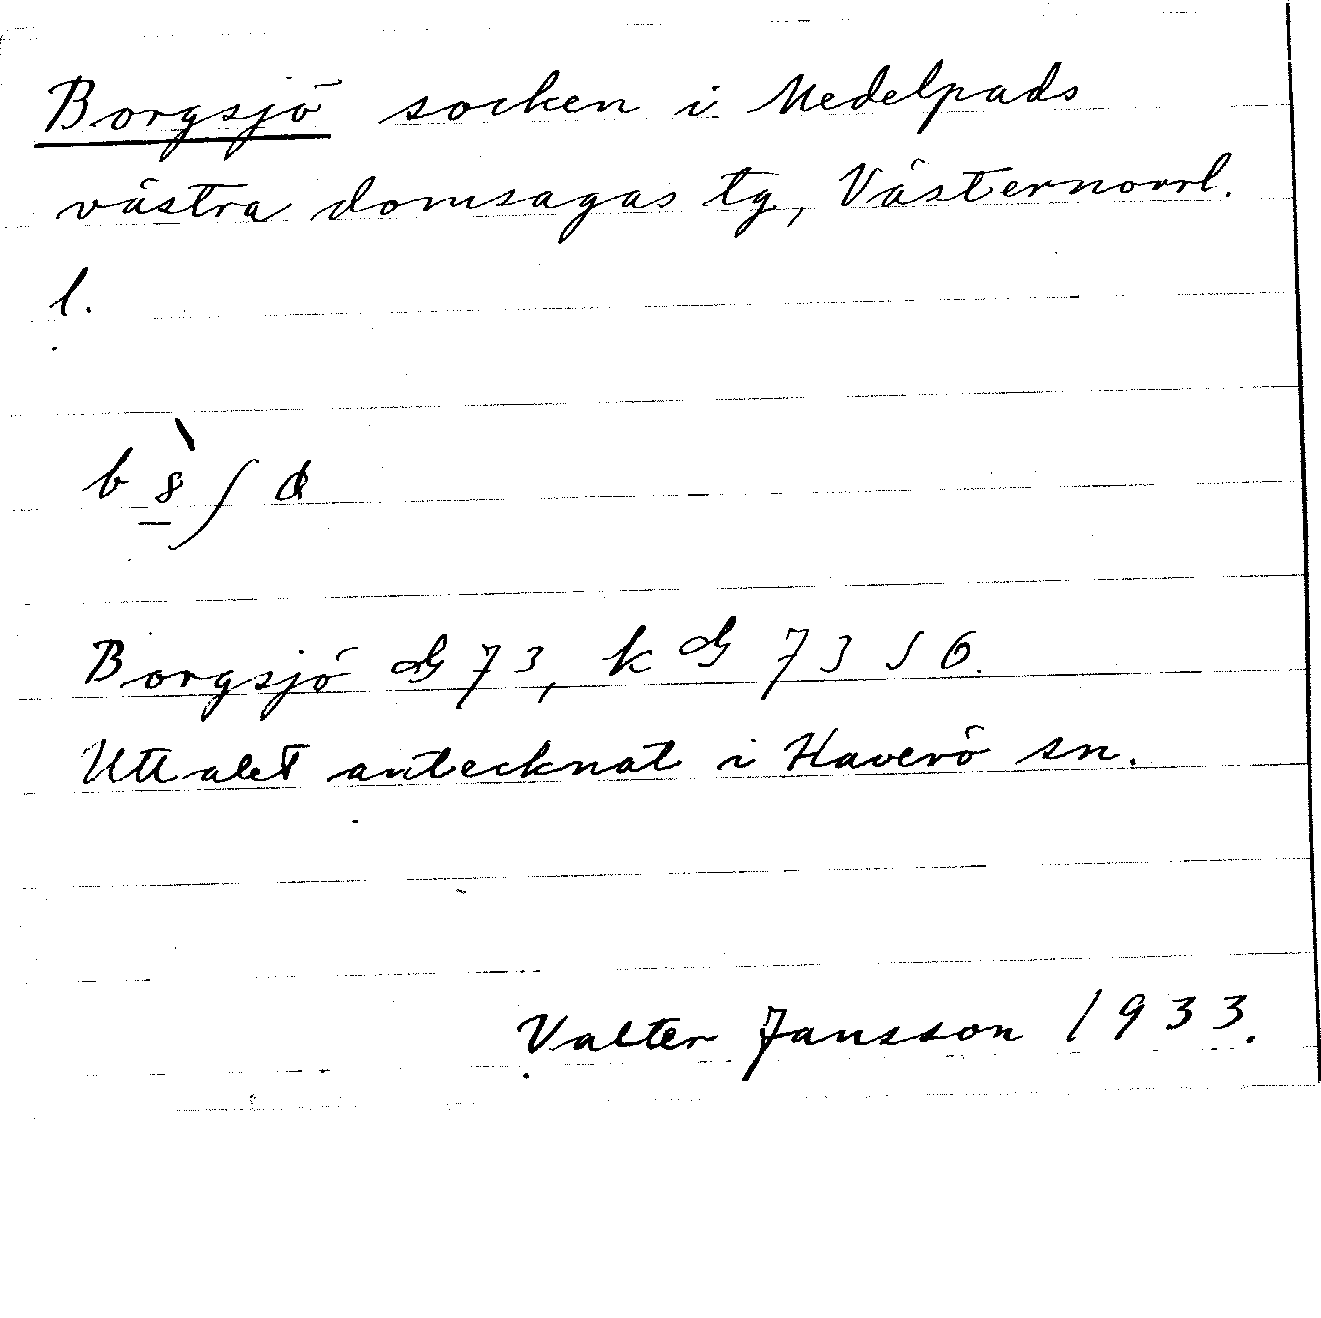 Borgsjö socken i Medelpads
västra domsagas tg, Västernorrl.
l.
Borgsjö 73, k 73 56.
Uttalet antecknat i Haverö sn.
Valter Jansson 1933.